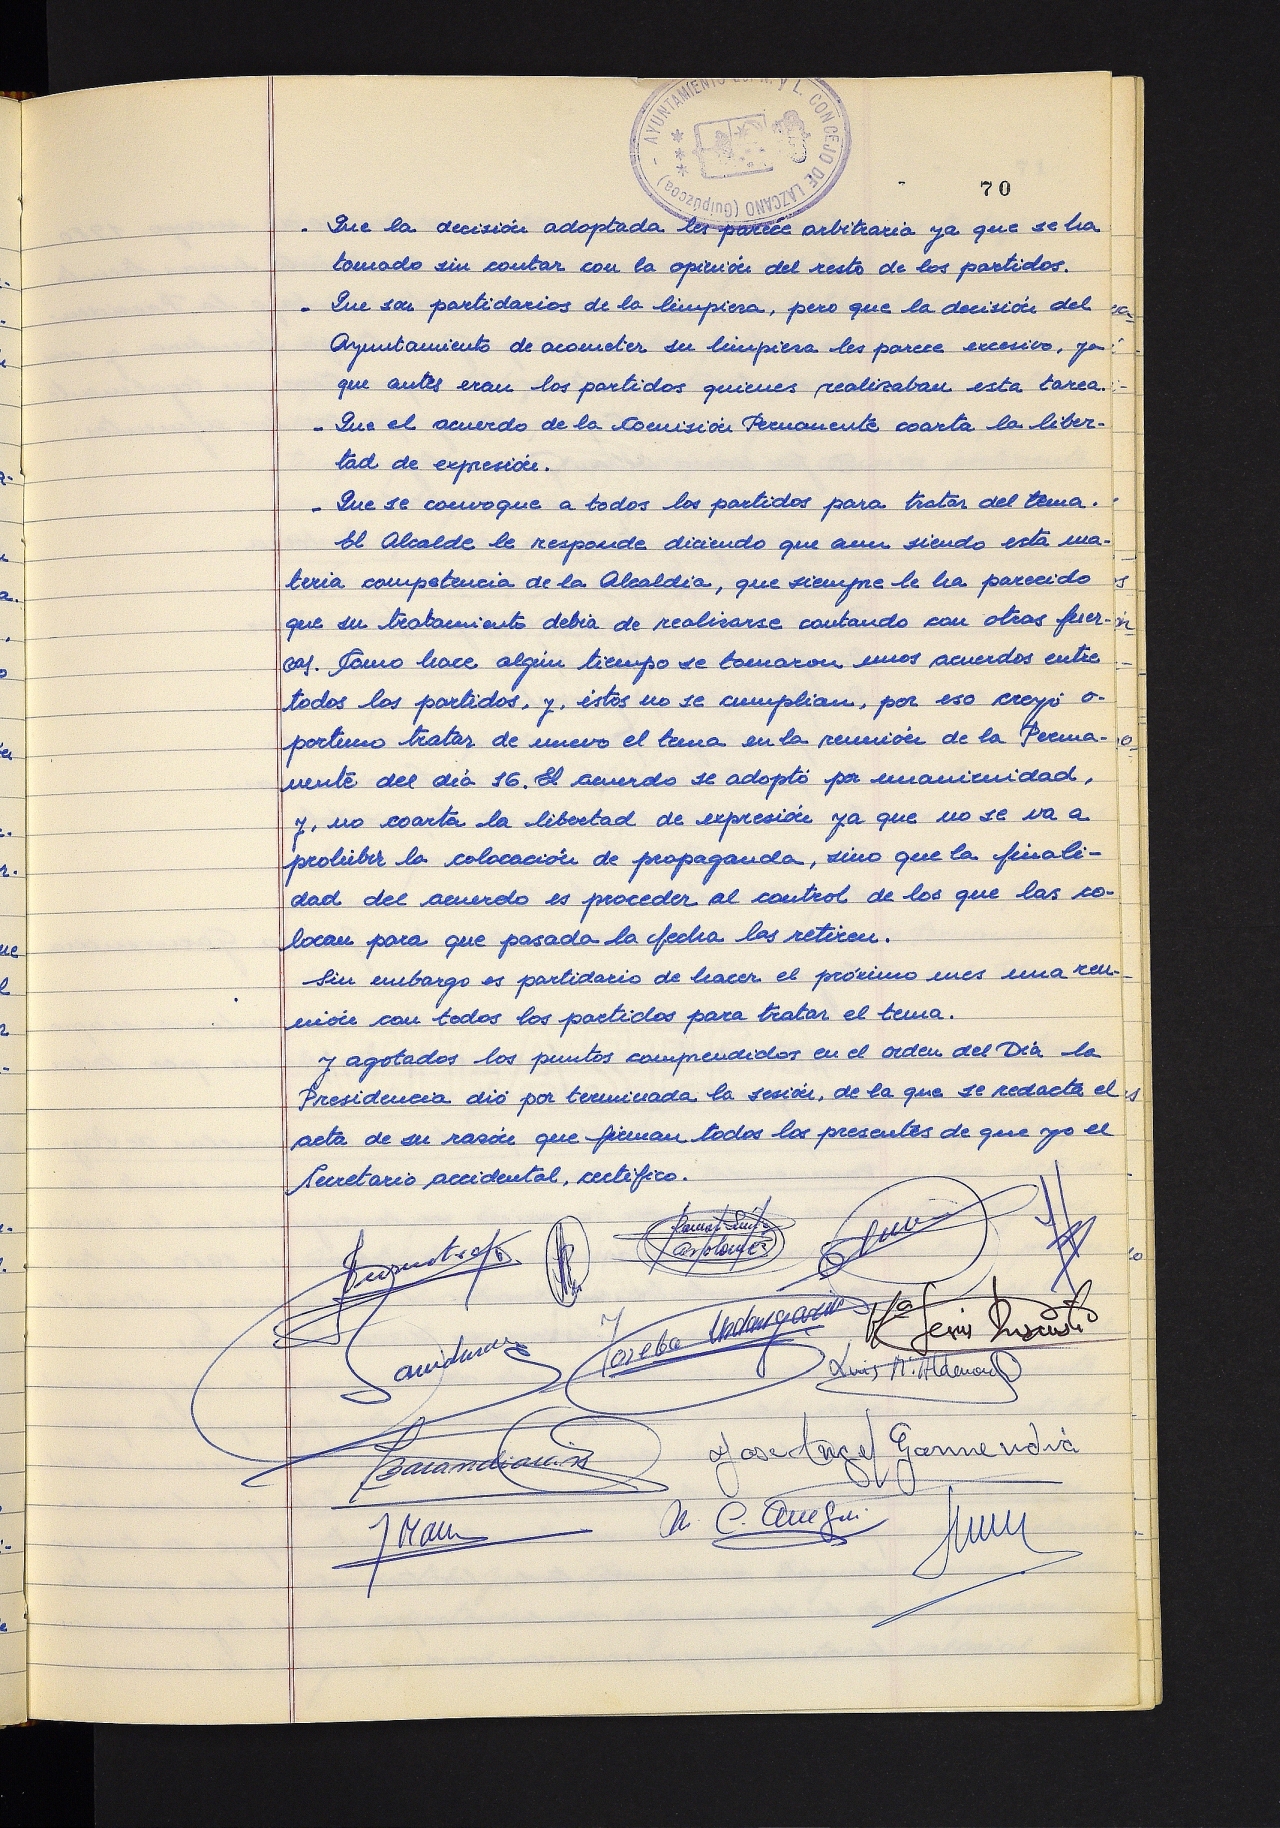 AYUNTAMIENTO Y L. CONCEJO DE LAZCANO (Guipúzcoa)
70
- Que la decisión adoptada les parece arbitraria ya que se ha
tomado sin contar con la opinión del resto de los partidos.
- Que son partidarios de la limpieza, pero que la decisión del
Ayuntamiento de acometer su limpieza les parece excesivo, ya
que antes eran los partidos quienes realizaban esta tarea.
- Que el acuerdo de la Comisión Permanente coarta la liber-
tad de expresión.
- Que se convoque a todos los partidos para tratar del tema.
El Alcalde le responde diciendo que aun siendo esta ma-
teria competencia de la Alcaldía, que siempre le ha parecido
que su tratamiento debía de realizarse contando con otras fuer-
zas. Como hace algún tiempo se tomaron unos acuerdos entre
todos los partidos, y, éstos no se cumplían, por eso creyó o-
portuno tratar de nuevo el tema en la reunión de la Perma-
nente del día 16. El acuerdo se adoptó por unanimidad,
y, no coarta la libertad de expresión ya que no se va a
prohibir la colocación de propaganda, sino que la finali-
dad del acuerdo es proceder al control de los que las co-
locan para que pasada la fecha las retiren.
Sin embargo es partidario de hacer el próximo mes una reu-
nión con todos los partidos para tratar el tema.
Y agotados los puntos comprendidos en el orden del Día la
Presidencia dió por terminada la sesión, de la que se redacta el
acta de su razón que firman todos los presentes de que yo el
Secretario accidental, certifico.
Joseba
Mª Jesús
Luis M.
Barandiarán
Jose Angel Garmendia
M. C.